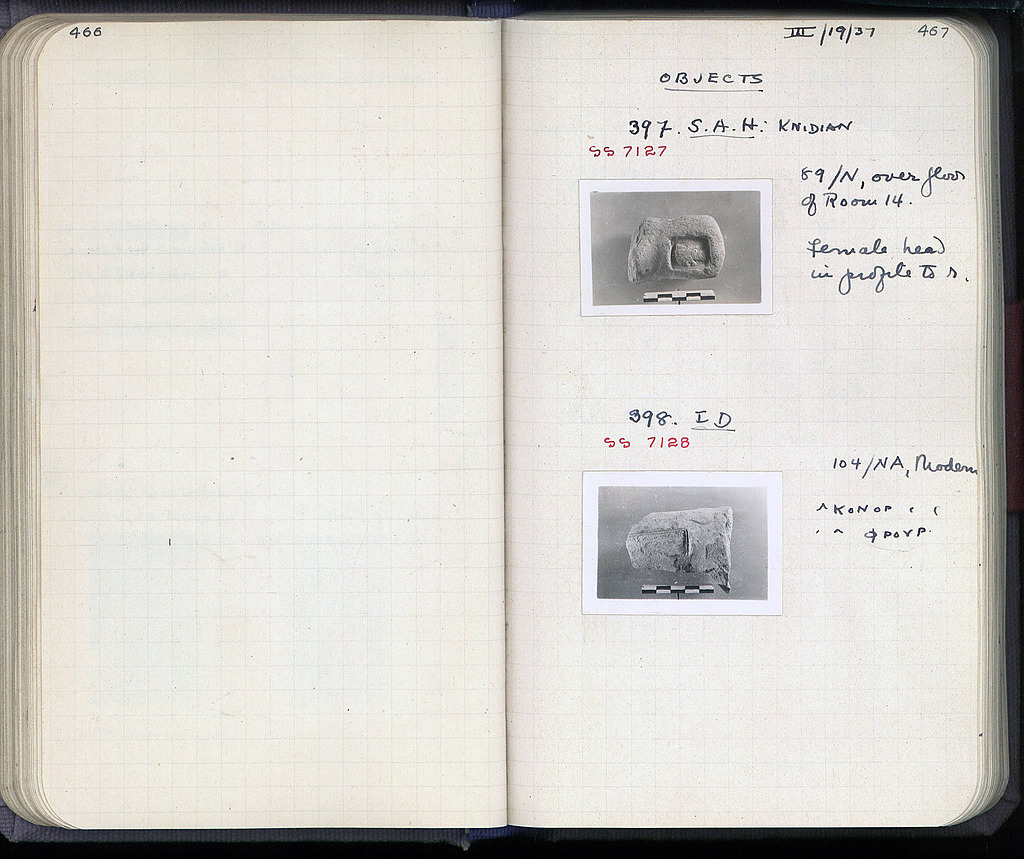 466
III/19/37 467
OBJECTS
397. S.A.H: KNIDIAN
SS 7127
89/N, over floor
of Room 14.
Female head
in profile to r.
398. ID
SS 7128
104/NA, Modern
^KONOP
ΦΡΟΥΡ.